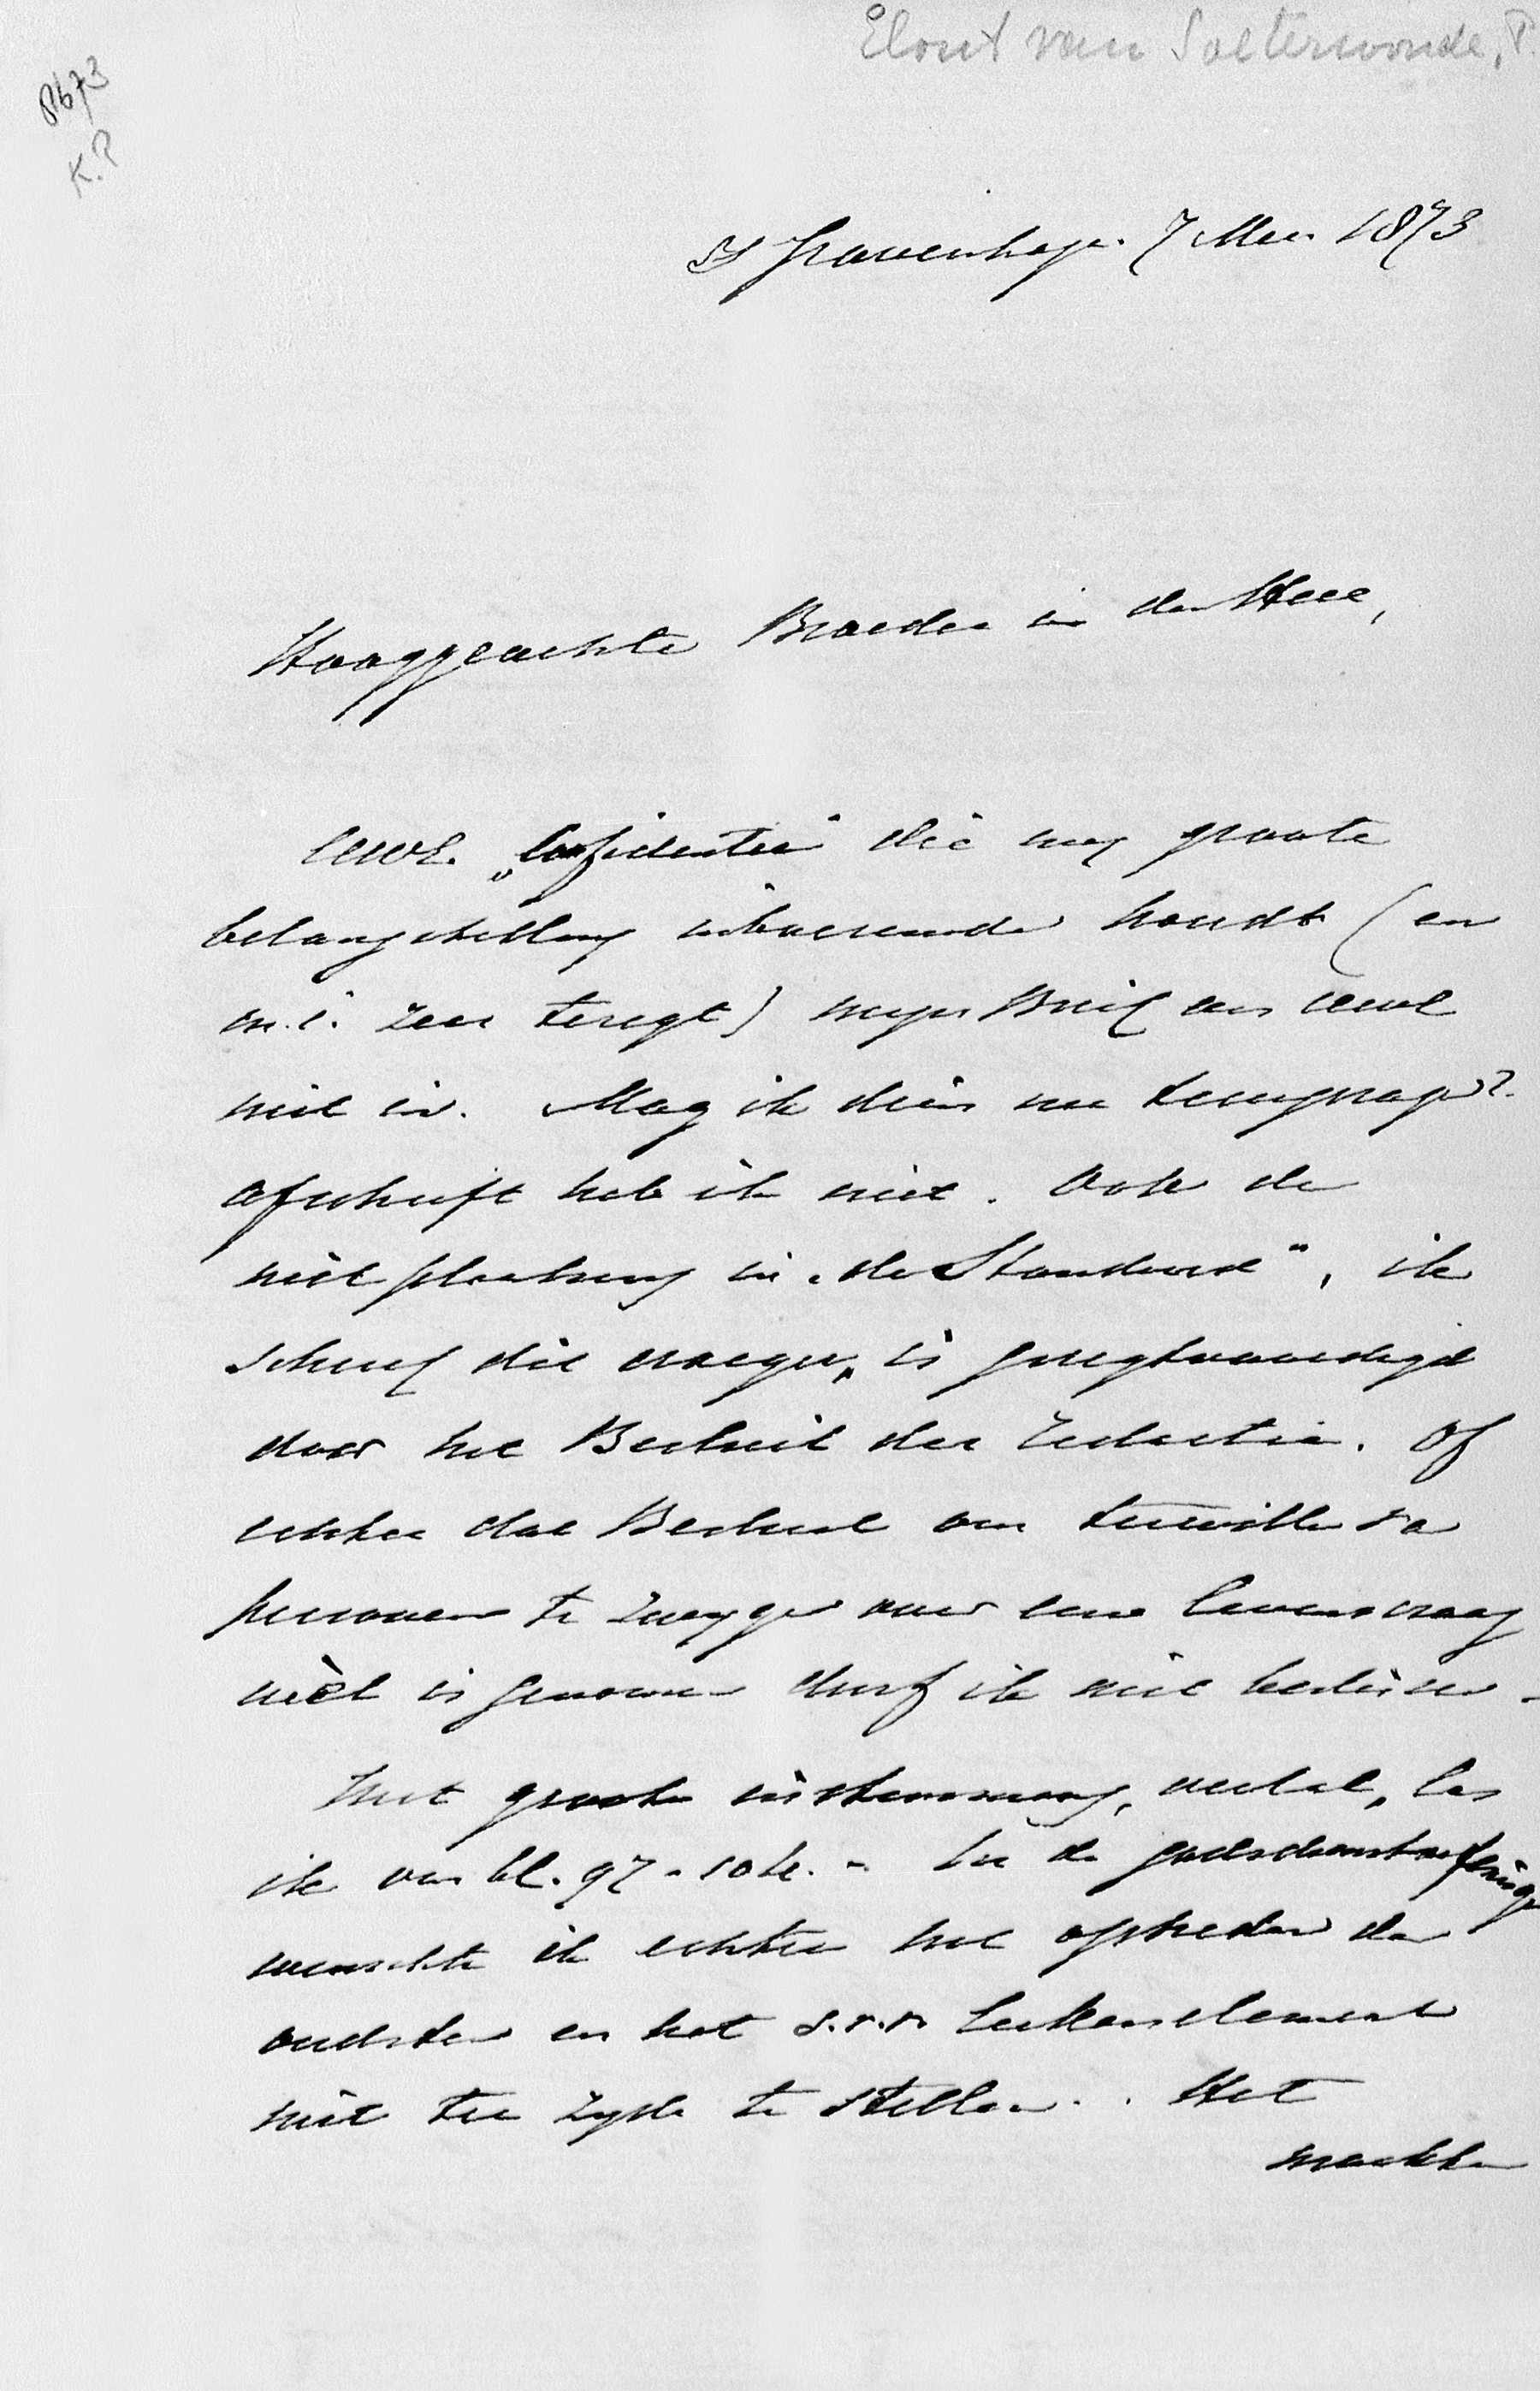 Elout van Soeterwoude, P.
8673
K.P
's Gravenhage. 7 Mei 1873
Hooggeachte Broeder in den Heer,
UWE. „Confidentie" die mij groote
belangstelling inboezemde houdt (en
m.i. zeer teregt) mijn Brief aan UWE
niet in. Mag ik dien nu terugvragen?
Afschrift heb ik niet. Ook de
niet plaatsing in „de Standaard", ik
schreef dit vroeger, is geregtvaardigd
door het Besluit der Redactie. Of
echter dat Besluit om terwille van
personen te zwijgen over eene levensvraag
wèl is genomen durf ik niet beslissen -
Met groote instemming, veelal, las
ik van bl. 97 - 104. - In de godsdienstoefeningen
wenschte ik echter het optreden der
oudsten en het s.v.v. Leekenelement
niet ter zyde te stellen. Het